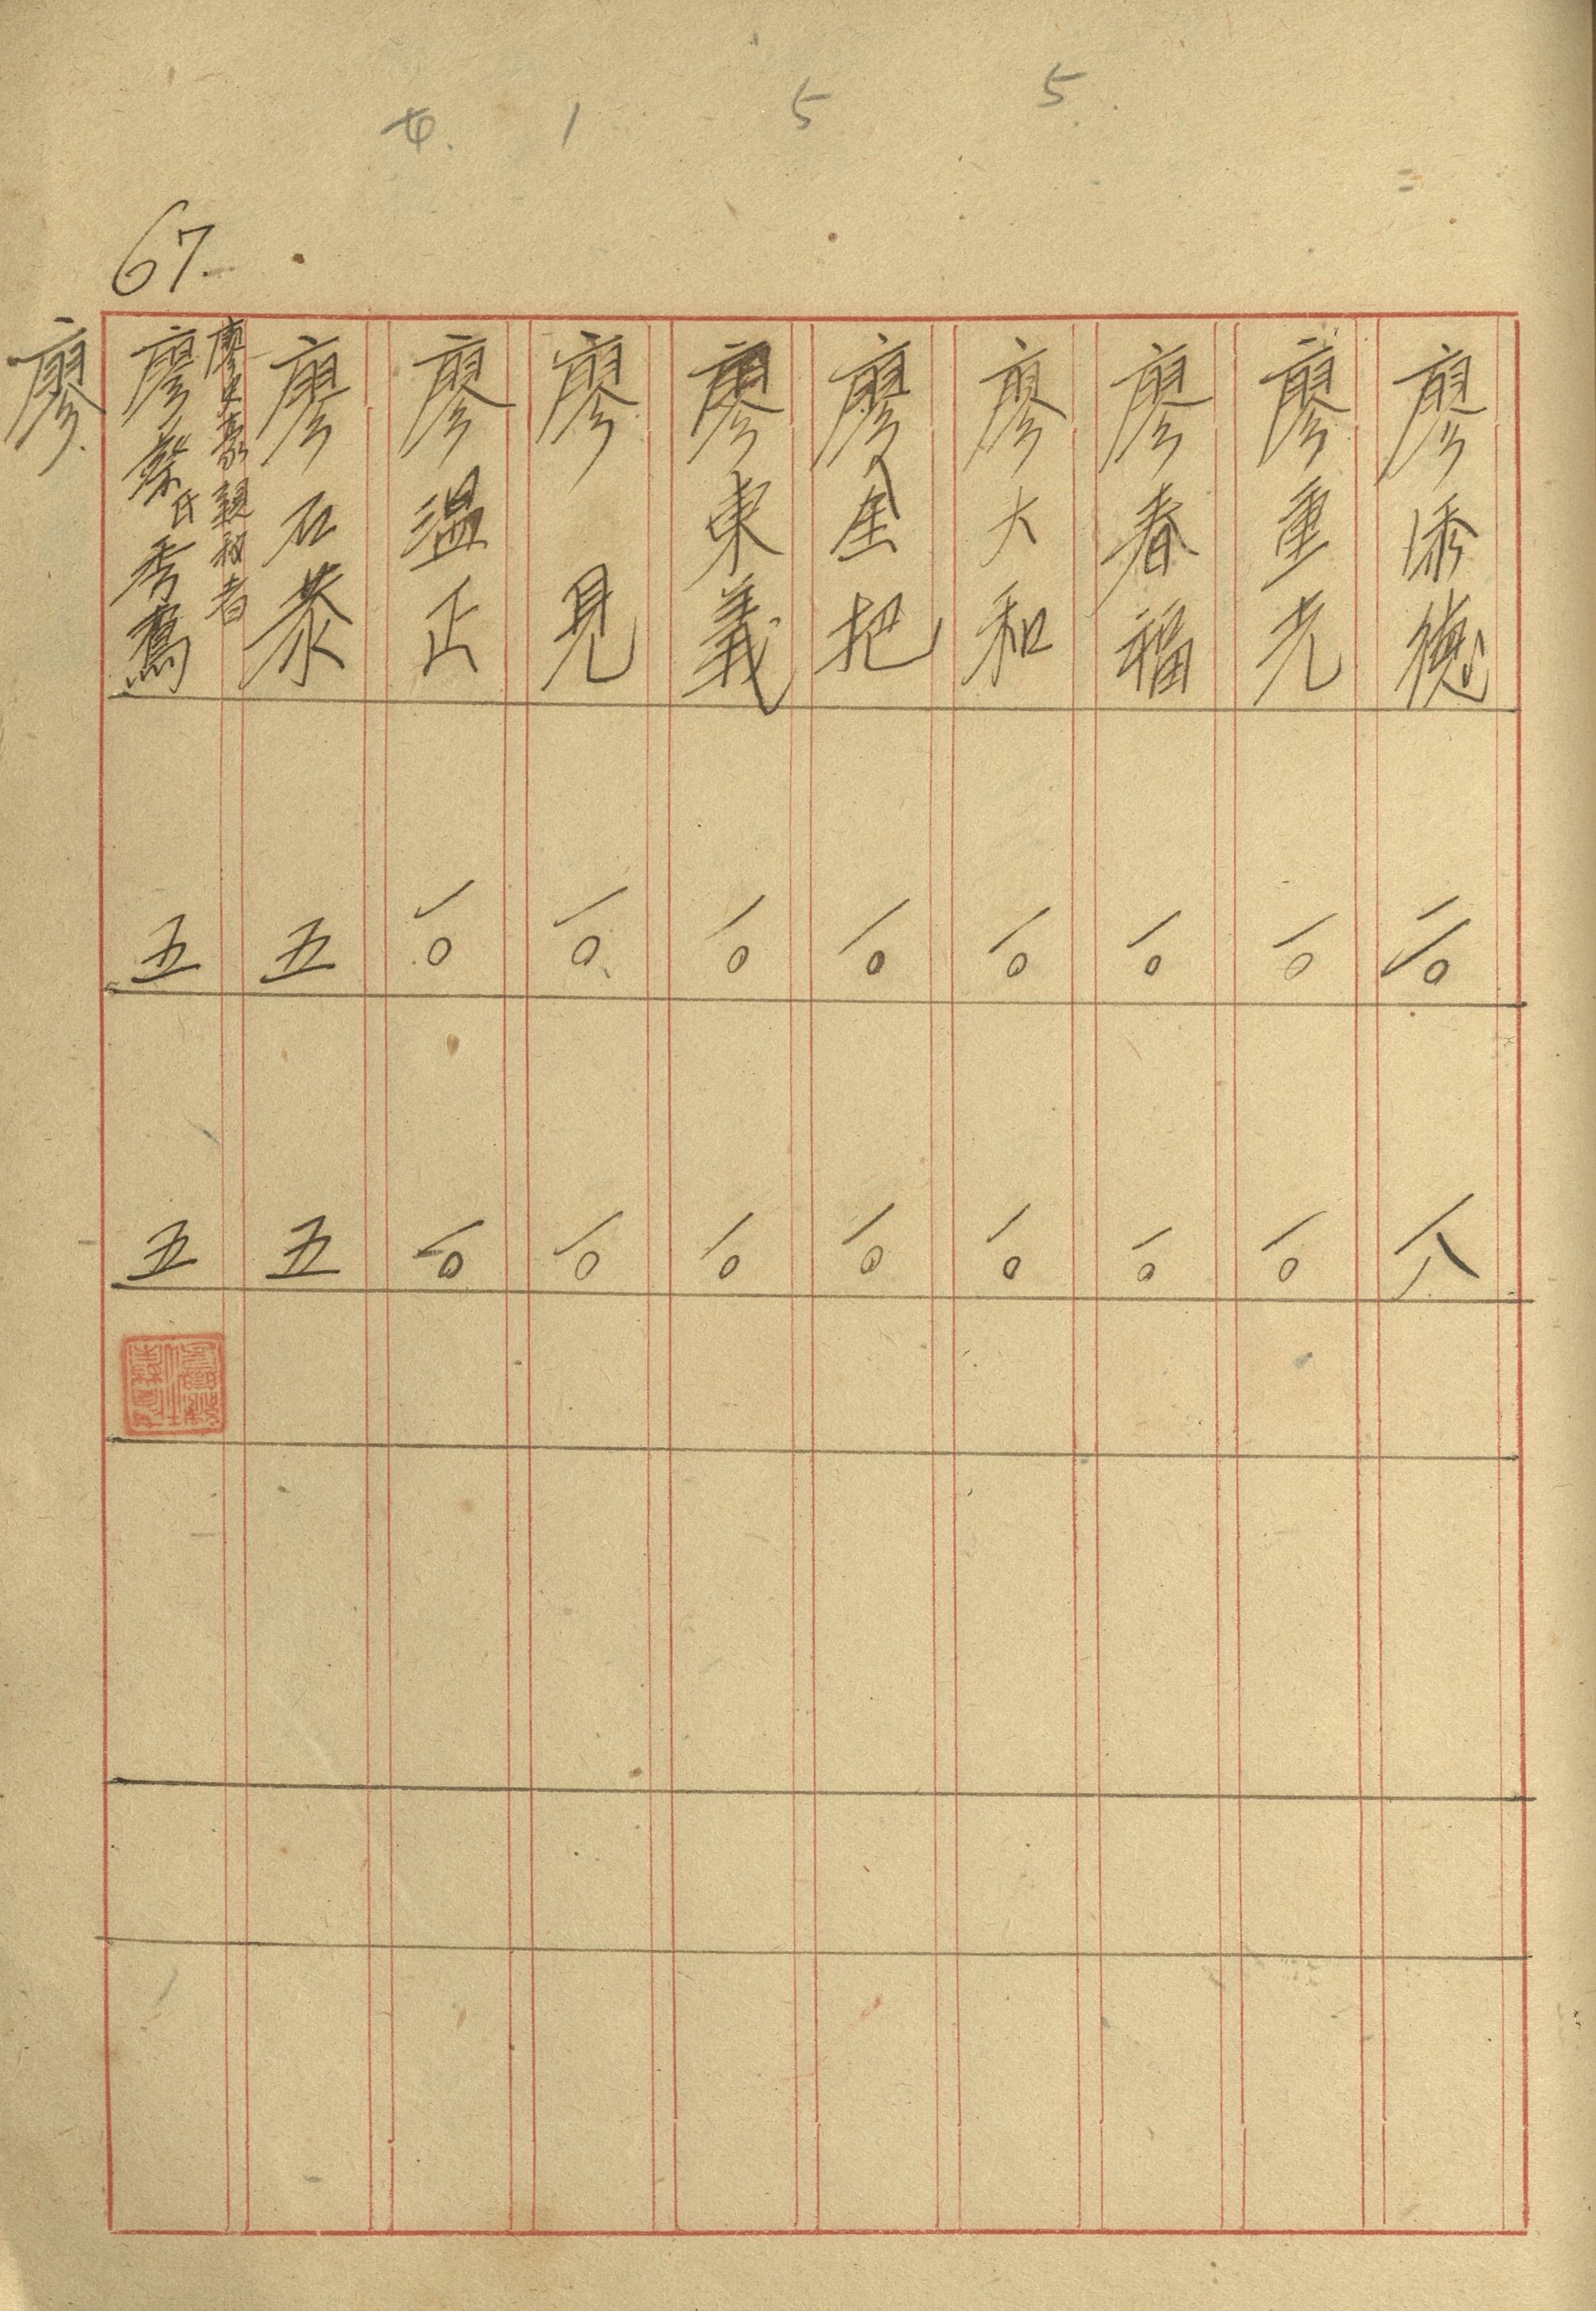 5 5 1
67.
廖添德 二〇
廖重光 一〇 一〇
廖春福 一〇 一〇
廖大和 一〇 一〇
廖金把 一〇 一〇
廖東義 一〇 一〇
廖見 一〇 一〇
廖温正 一〇 一〇
廖石恭 五 五
親权者
廖蔡氏秀鶯 五 五
廖